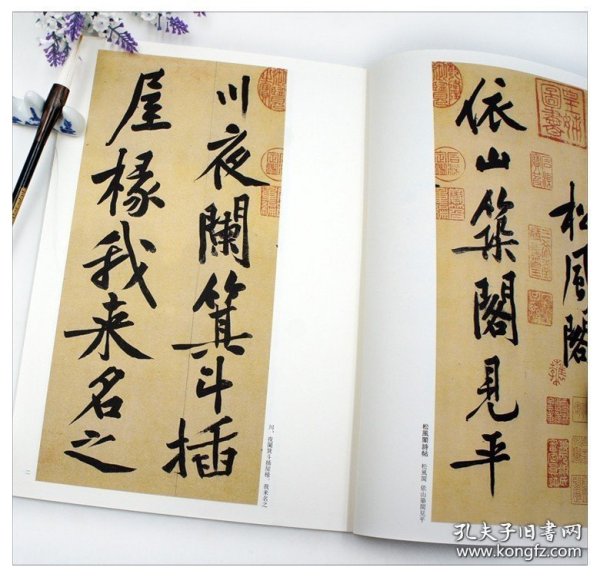 松風閣
依山築閣見平
松風閣詩帖 松風閣 依山築閣見平
川夜闌箕斗插
屋椽我来名之
川、夜闌箕斗插屋椽、我来名之
二
孔夫子旧书网
www.kongfz.com